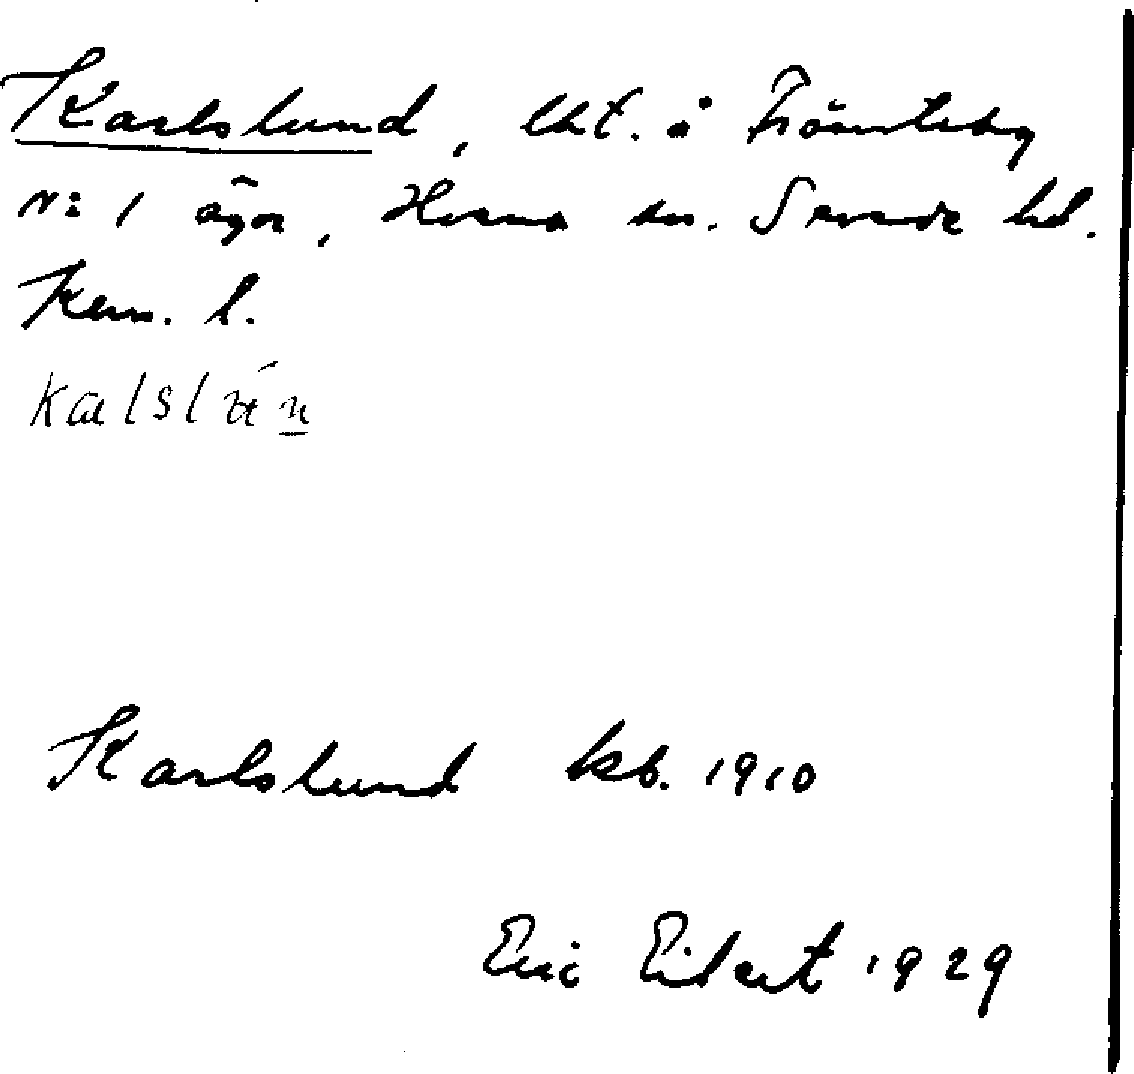 Karlslund, lht. å Frömteby
N: 1 ägor, Horna sn. Sevede hd.
Kem. l.
kalslún
Karlslund kb. 1910
Eric Eilert 1929